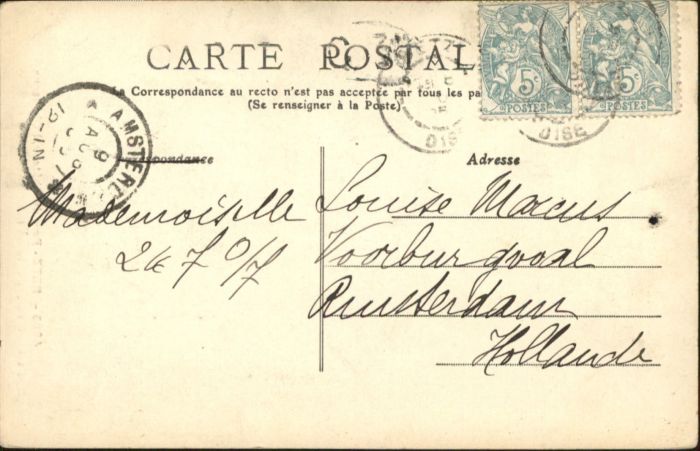 CARTE POSTAL
La Correspondance au recto n'est pas acceptée par tous les pa
(Se renseigner à la Poste)
5c 5c
POSTES POSTES
OISE OISE
AMSTERD
9
AUG
12-1N
respondance
Adresse
Mademoiselle Louise Marcus
Voorburgwal
Amsterdam
Hollande